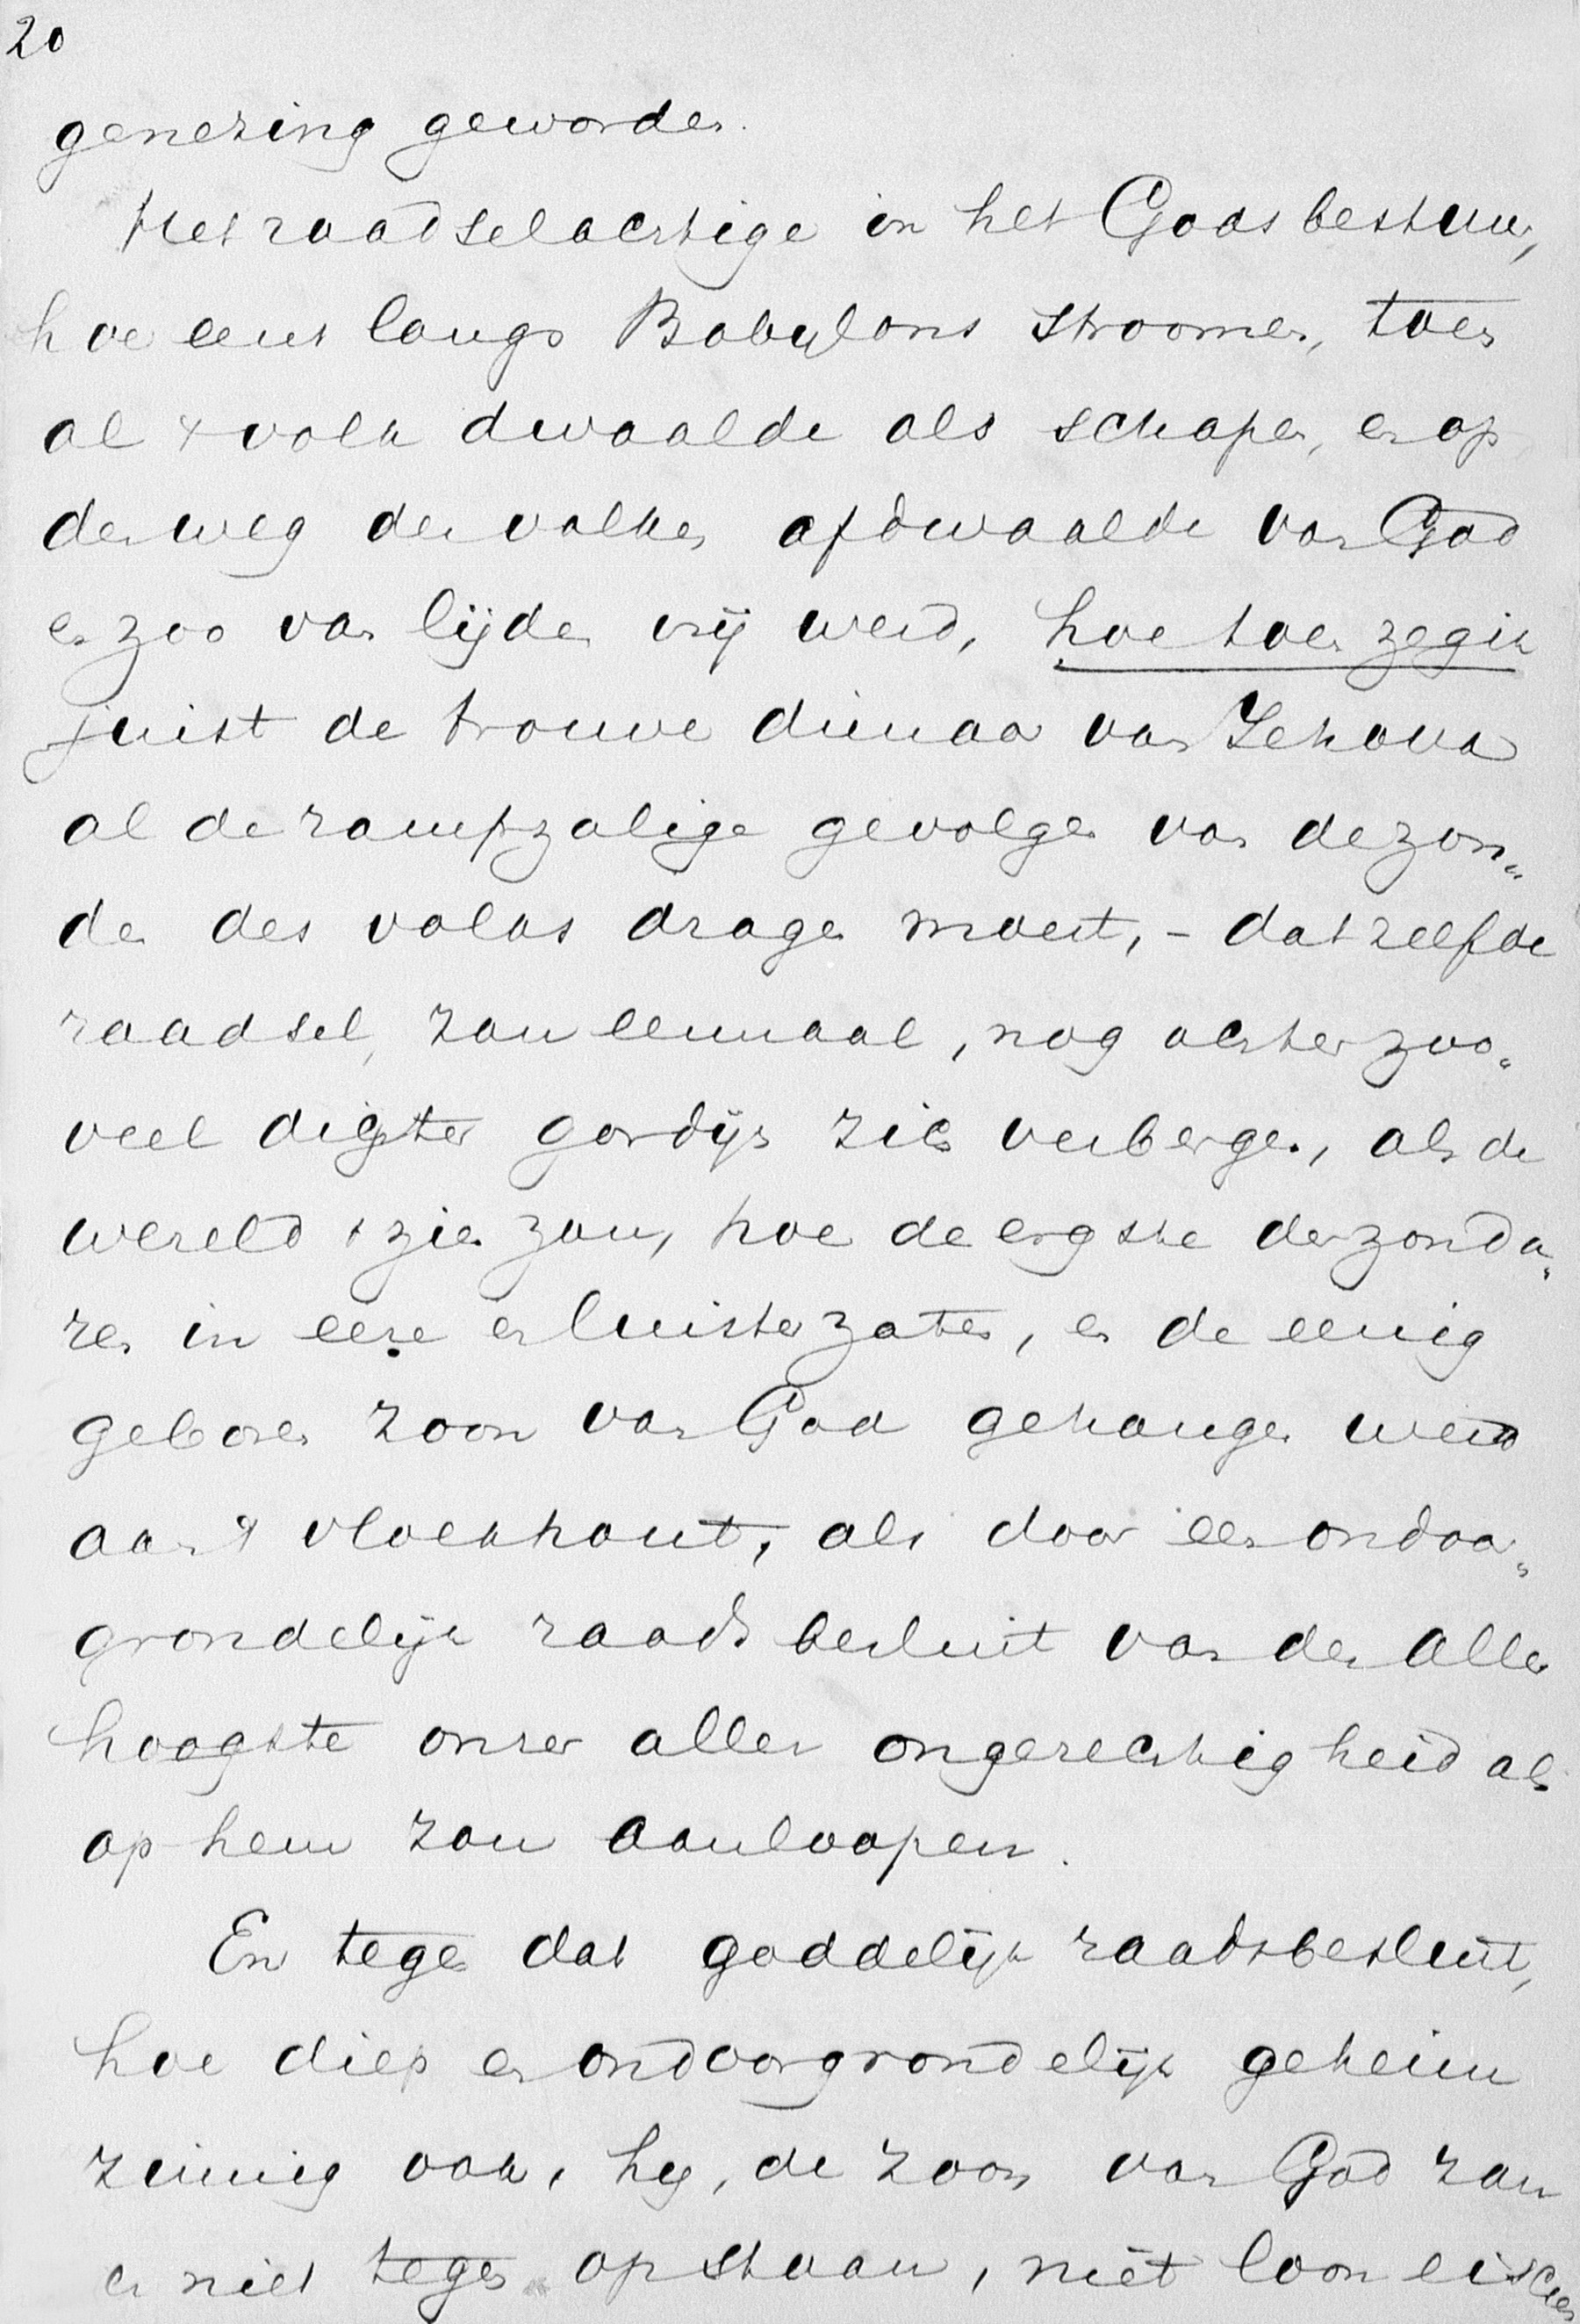 20
genezing geworden.
Het raadselachtige in het Godsbestuur,
hoe eens langs Babylons stroomen, toen
al 't volk dwaalde als schapen, en op
den weg der volken afdwaalde van God
en zoo van lijden vrij werd, hoe toen zeg ik
juist de trouwe dienaar van Jehova
al de rampzalige gevolgen van de zon„
den des volks dragen moest, - datzelfde
raadsel, zou eenmaal, nog achter zoo„
veel digter gordijn zich verbergen, als de
wereld 't zien zou, hoe de ergste der zonda„
ren in eere en luister zaten, en de eenig
geboren zoon van God gehangen werd
aan 't vloekhout, als door een ondoor„
grondelijk raadsbesluit van den aller
hoogste onzer aller ongerechtigheid als
op hem zou aanloopen.
En tegen dat goddelijk raadsbesluit,
hoe diep en ondoorgrondelijk geheim
zinnig ook, hij, de zoon van God zou
er niet tegen opstaan, niet loon eischen